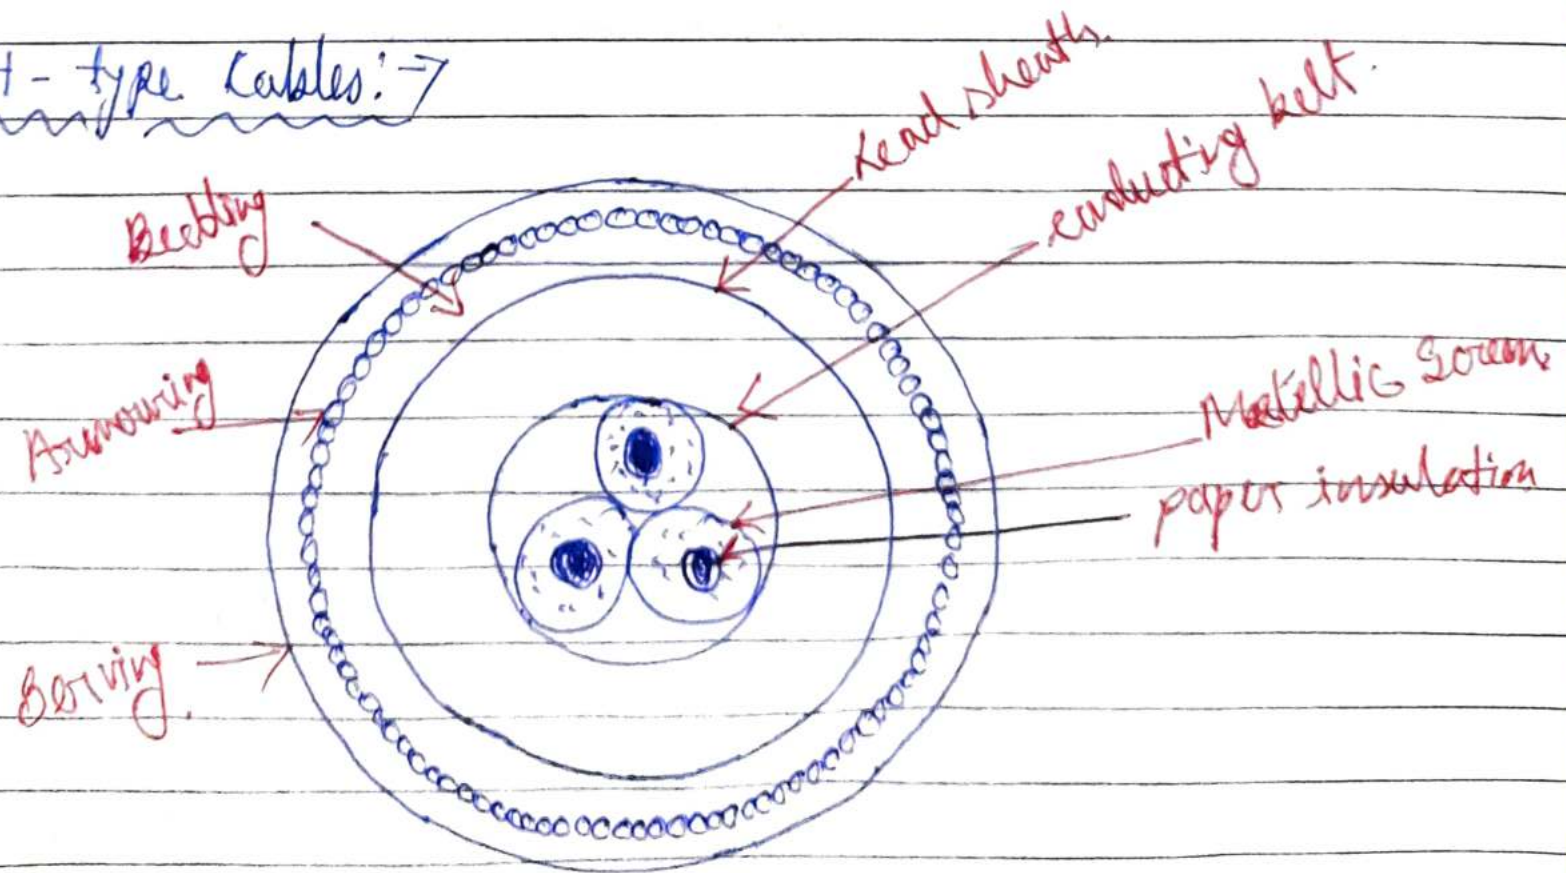 - type Cables:->
Lead sheath.
conducting belt.
Bedding
Armouring
Metallic Screen
paper insulation
Serving.